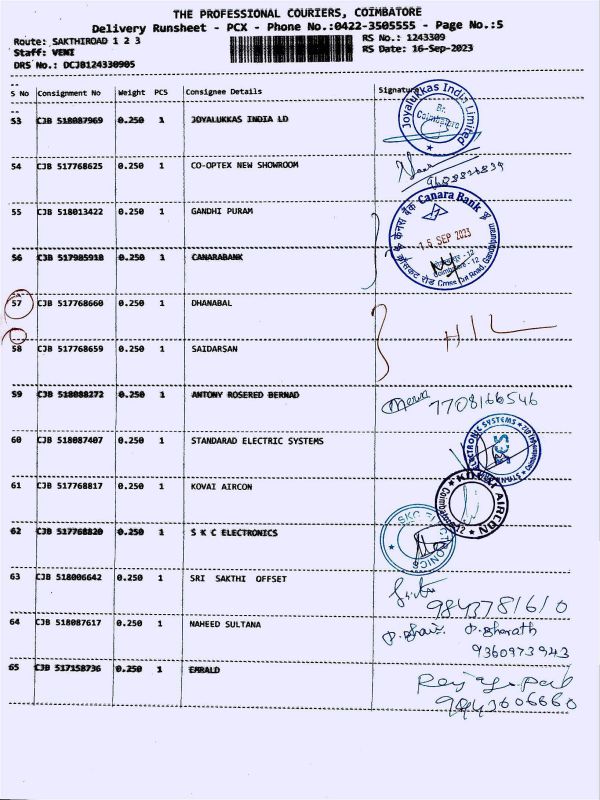 THE PROFESSIONAL COURIERS, COIMBATORE
Delivery Runsheet - PCX - Phone No.:0422-3505555 - Page No.:5
Route: SAKTHIROAD 1 2 3 RS No.: 1243309
Staff: VENI RS Date: 16-Sep-2023
DRS No.: DCJB124330905
S No Consignment No Weight PCS Consignee Details Signature
53 CJB 518087969 0.250 1 JOYALUKKAS INDIA LD
Joyalukkas India Limited
Br.
Coimbatore
54 CJB 517768625 0.250 1 CO-OPTEX NEW SHOWROOM
55 CJB 518013422 0.250 1 GANDHI PURAM
केनरा बैंक Canara Bank
15 SEP 2023
Coimbatore - 12
Cross Cut Road, Gandhipuram
56 CJB 517985918 0.250 1 CANARABANK
57 CJB 517768660 0.250 1 DHANABAL
HIL
58 CJB 517768659 0.250 1 SAIDARSAN
59 CJB 518088272 0.250 1 ANTONY ROSERED BERNAD
7708166546
60 CJB 518087407 0.250 1 STANDARAD ELECTRIC SYSTEMS
SES
61 CJB 517768817 0.250 1 KOVAI AIRCON
KOVAI AIRCON
Coimbatore-12
62 CJB 517768820 0.250 1 S K C ELECTRONICS
SKC ELECTRONICS
63 CJB 518006642 0.250 1 SRI SAKTHI OFFSET
9843781610
64 CJB 518087617 0.250 1 NAHEED SULTANA
P. Bharath
9360973943
65 CJB 517158736 0.250 1 EMRALD
9843606660